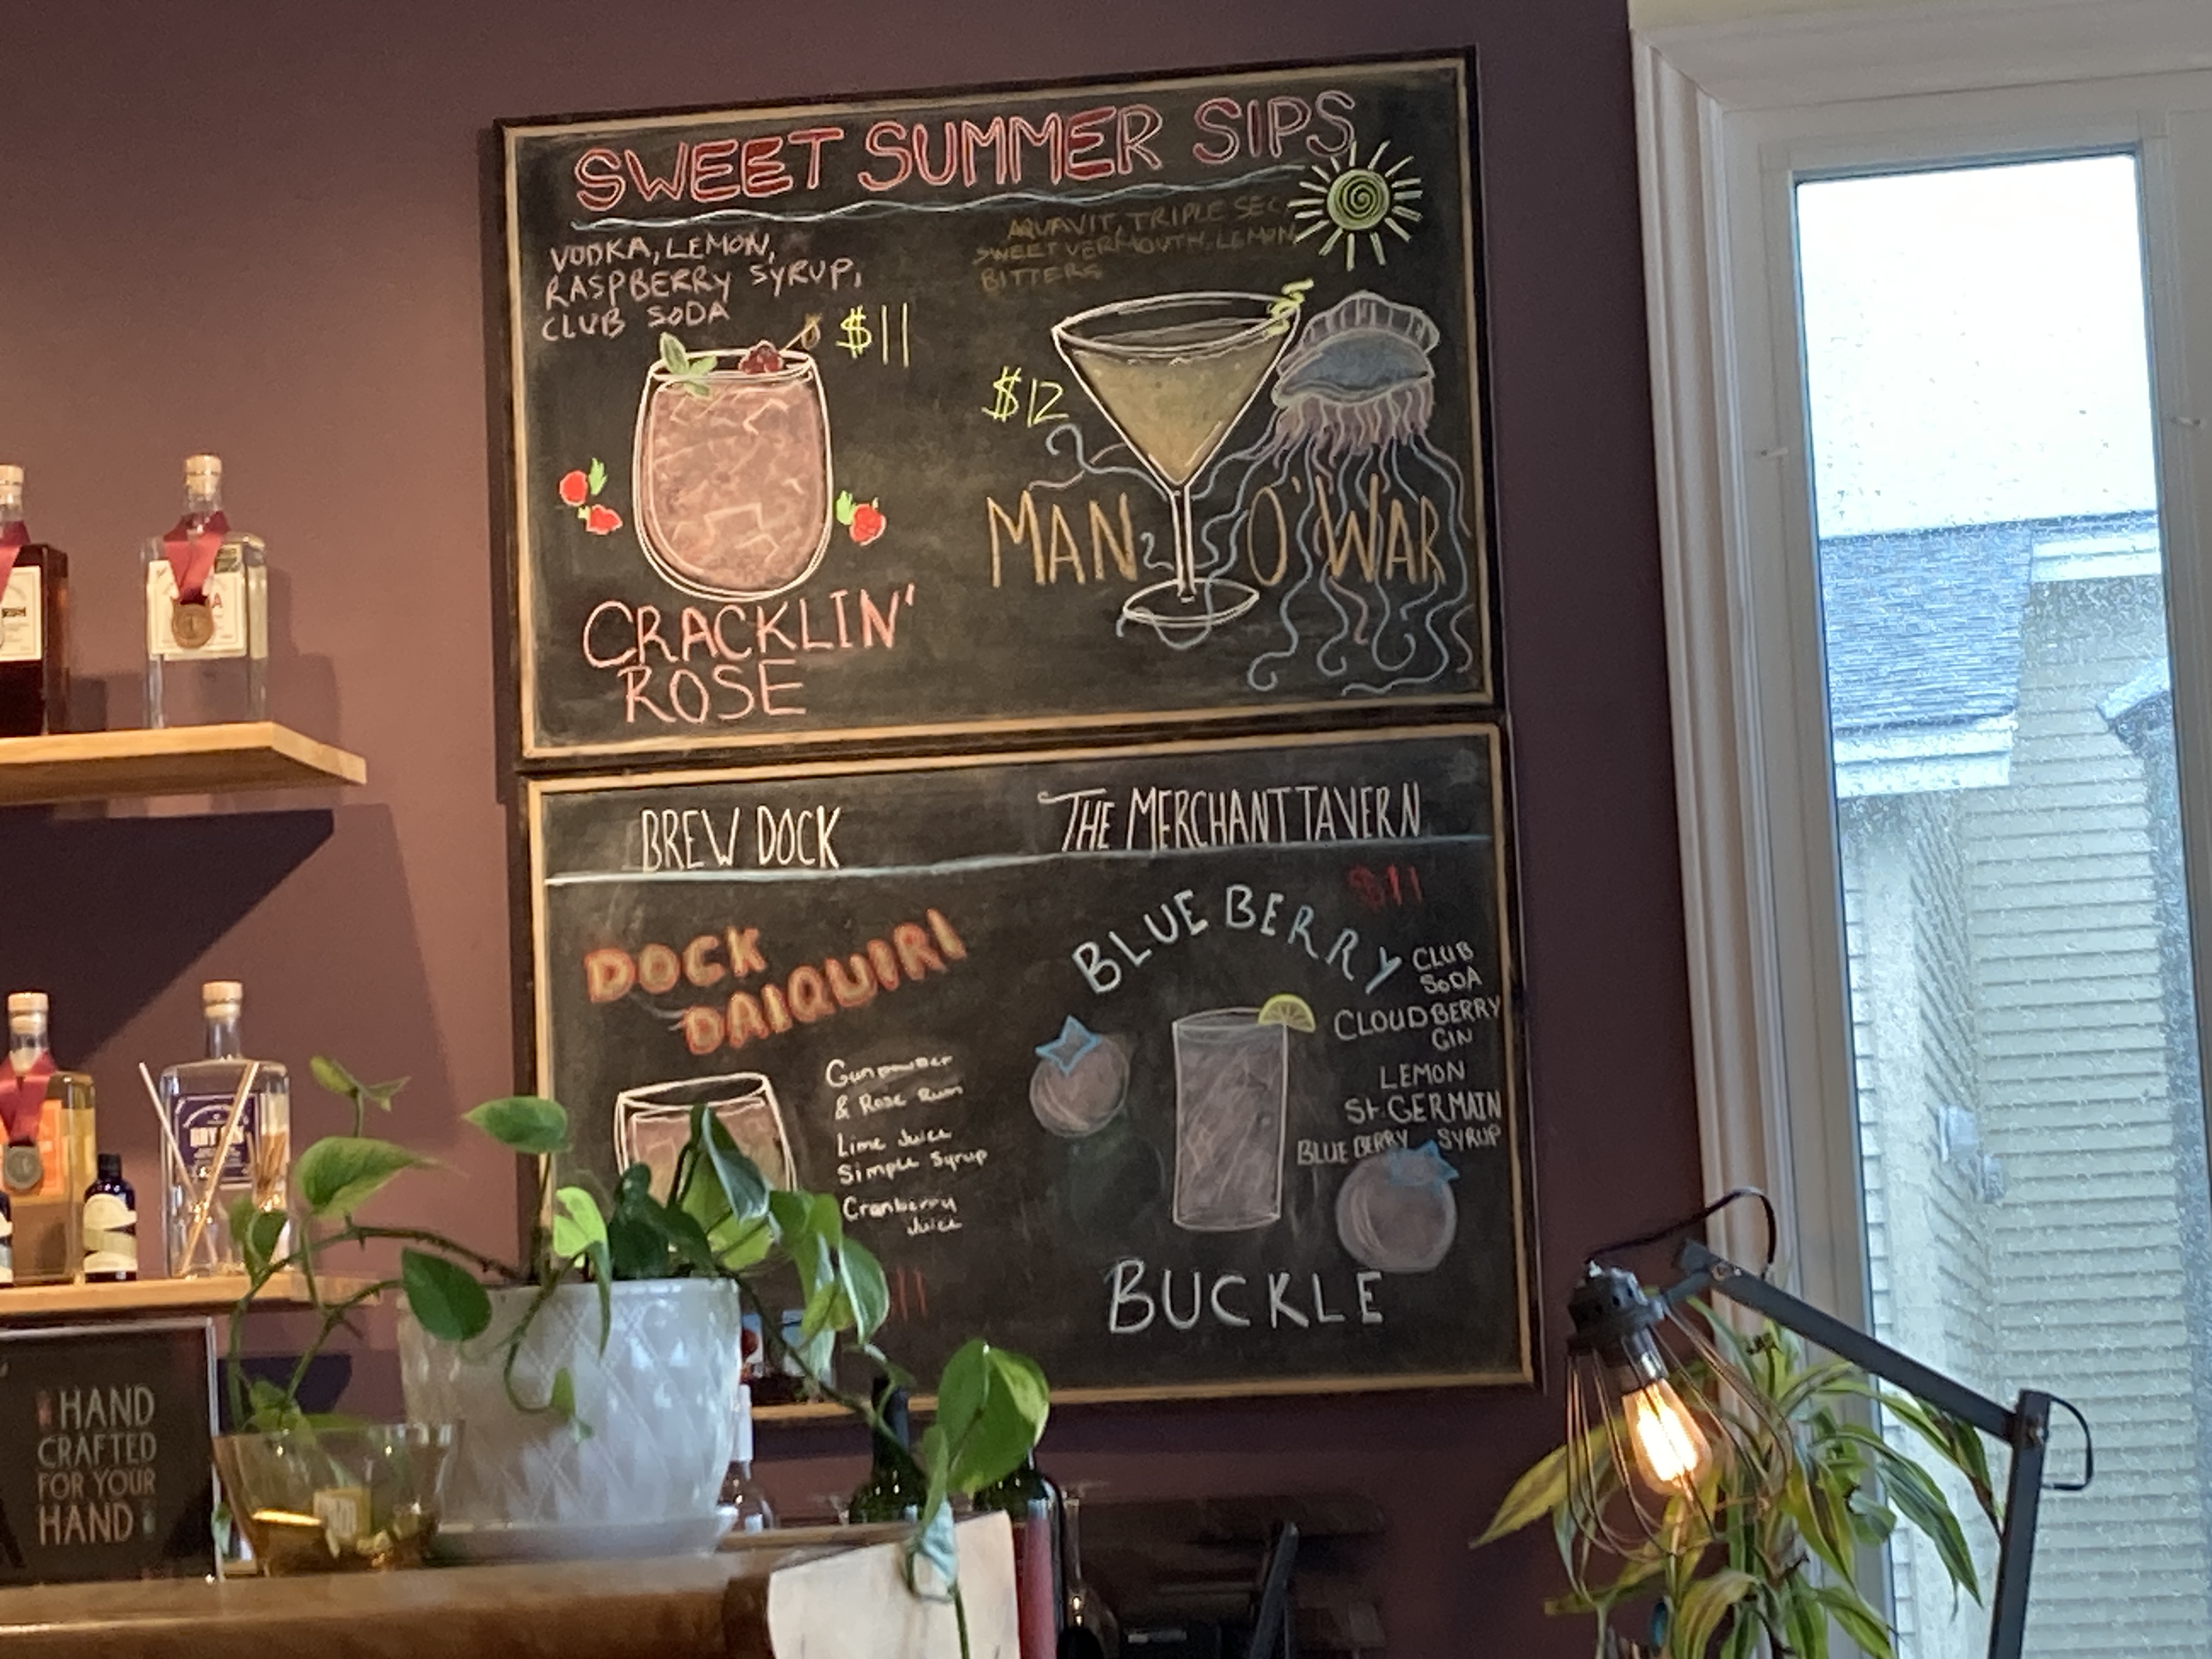 SWEET SUMMER SIPS
VODKA, LEMON,
RASPBERRY SYRUP,
CLUB SODA
$11
CRACKLIN'
ROSE
AQUAVIT, TRIPLE SEC,
SWEET VERMOUTH, LEMON,
BITTERS
$12
MAN O'WAR
BREW DOCK
DOCK
DAIQUIRI
Gunpowder
& Rose Rum
Lime Juice
Simple Syrup
Cranberry
Juice
THE MERCHANT TAVERN
$11
BLUE BERRY
CLUB
SODA
CLOUDBERRY
GIN
LEMON
St. GERMAIN
BLUE BERRY SYRUP
BUCKLE
DRY GIN
HAND
CRAFTED
FOR YOUR
HAND